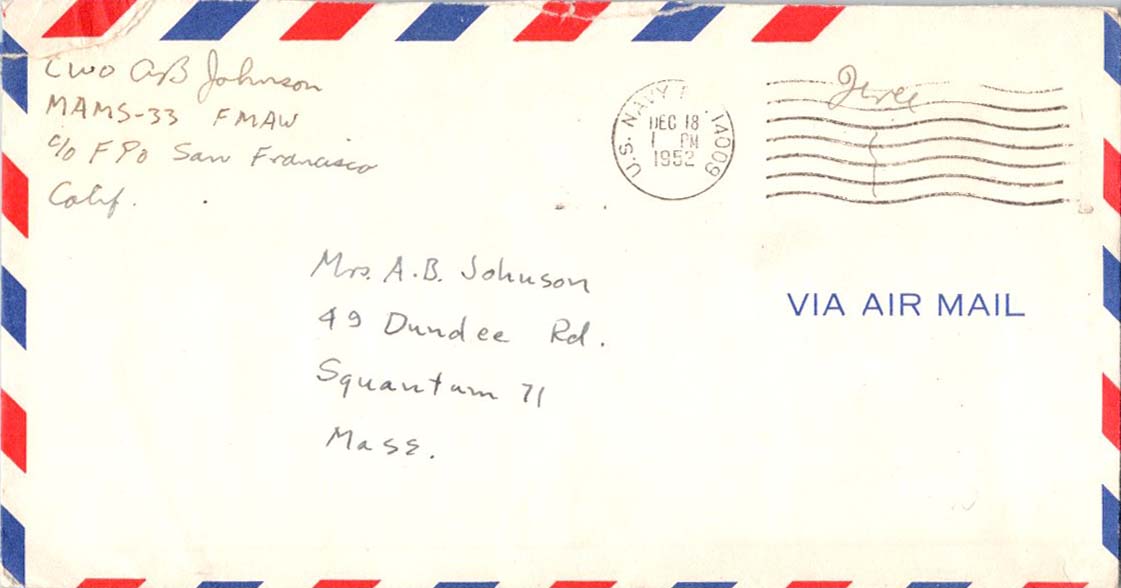 CWO AB Johnson
MAMS-33 FMAW
c/o FPO San Francisco
Calif.
U.S. NAVY 14009
DEC 18
1 PM
1952
Free
Mrs. A.B. Johnson
49 Dundee Rd.
Squantum 71
Mass.
VIA AIR MAIL